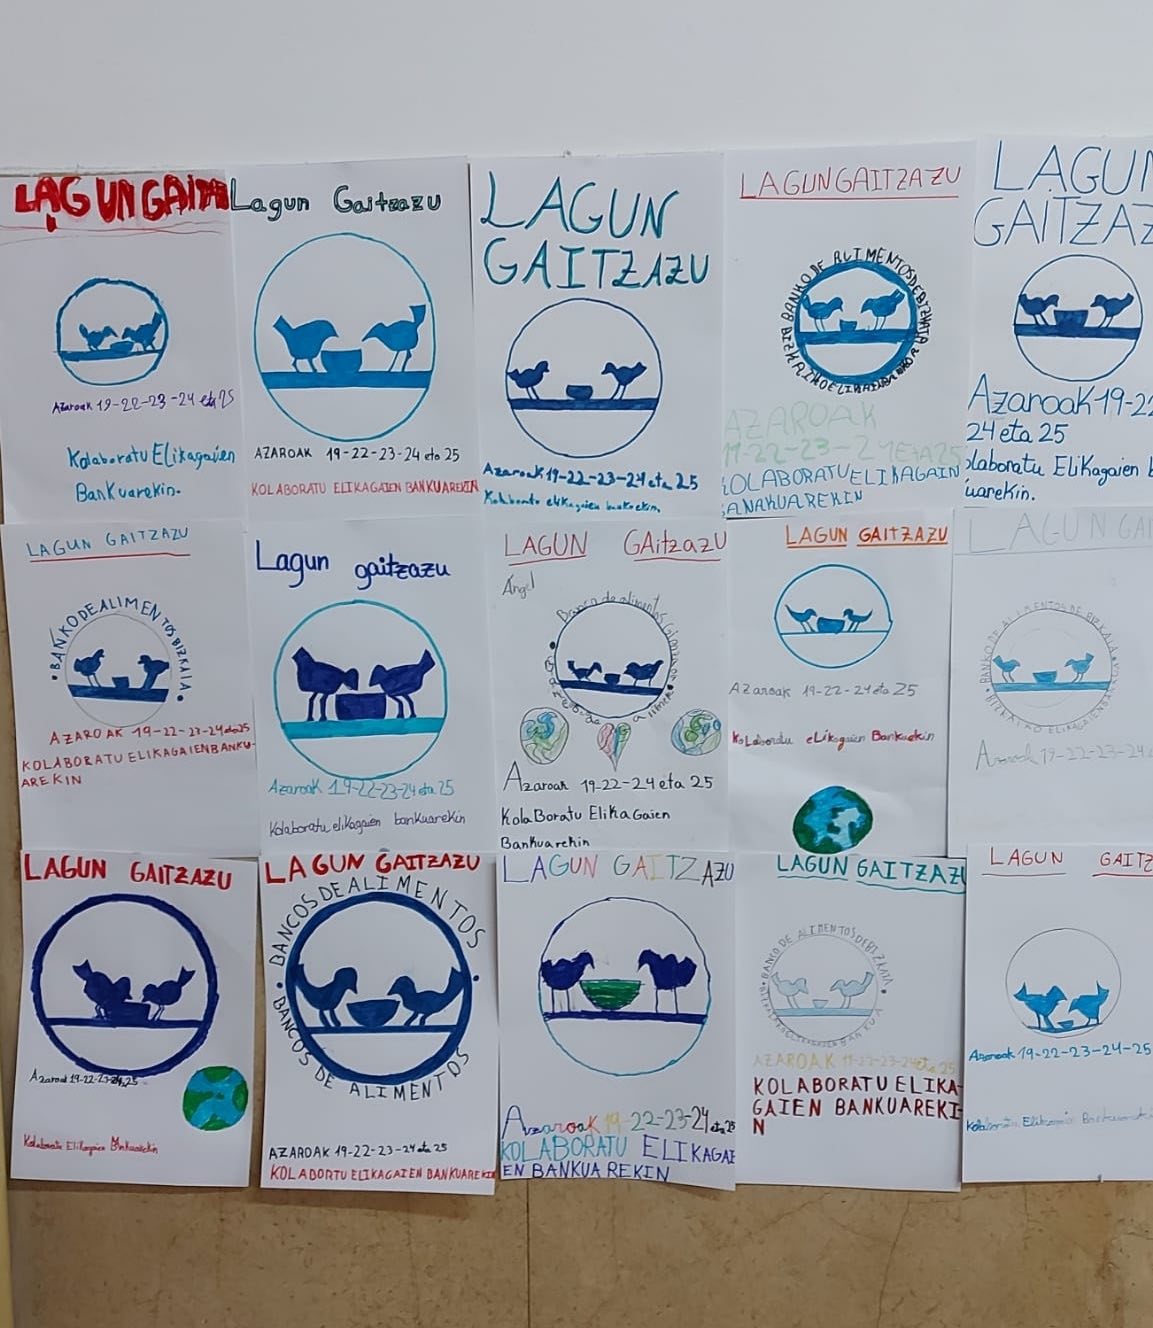 LAGUN GAITZAZU
Azaroak 19-22-23-24 eta 25
Kolaboratu Elikagaien
Bankuarekin.
Lagun Gaitzazu
AZAROAK 19-22-23-24 eta 25
KOLABORATU ELIKAGAIEN BANKUAREKIN
LAGUN
GAITZAZU
Azaroak 19-22-23-24 eta 25
Kolaboratu elikagaien
LAGUN GAITZAZU
BANKO DE ALIMENTOS DE BIZKAIA
AZAROAK
19-22-23-24 ETA 25
KOLABORATU ELIKAGAIEN
BANAKUAREKIN
LAGUN
GAITZAZ
Azaroak 19-22
24 eta 25
olaboratu Elikagaien b
uarekin.
LAGUN GAITZAZU
BANKO DE ALIMENTOS BIZKAIA
AZAROAK 19-22-23-24 eta 25
KOLABORATU ELIKAGAIEN BANKU-
AREKIN
Lagun gaitzazu
Azaroak 19-22-23-24 eta 25
Kolaboratu elikagaien bankuarekin
LAGUN GAitzazu
Ángel
Banco de alimentos
Azaroak 19-22-24 eta 25
KolaBoratu Elikagaien
Bankuarekin
LAGUN GAITZAZU
Azaroak 19-22-24 eta 25
KoLaboratu eLikagaien Bankuekin
LAGUN GAI
BANKO DE ALIMENTOS DE BIZKAIA
BIZKAIKO ELIKAGAIEN
Azaroak 19-22-23-24
LAGUN GAITZAZU
Azaroak 19-22-23-24, 25
Kolaboratu Elikagaien Bankuarekin
LAGUN GAITZAZU
BANCOS DE ALIMENTOS
BANCOS DE ALIMENTOS
AZAROAK 19-22-23-24 eta 25
KOLABORTU ELIKAGAIEN BANKUAREKIN
LAGUN GAITZAZU
Azaroak 19-22-23-24 eta 25
KOLABORATU ELIKAGAI
EN BANKUAREKIN
LAGUN GAITZAZU
BANKO DE ALIMENTOS DE BIZKAIA
AZAROAK 19-22-23-24 eta 25
KOLABORATU ELIKA-
GAIEN BANKUAREKI-
N
LAGUN GAITZ
Azaroak 19-22-23-24-25
Kolaboratu Elikagaien